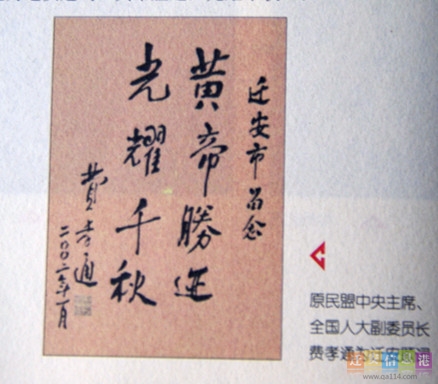 迁安市留念
黄帝勝迹
光耀千秋
費孝通
二〇〇二年一月
原民盟中央主席、
全国人大副委员长
费孝通为迁安题词
www.qa114.com